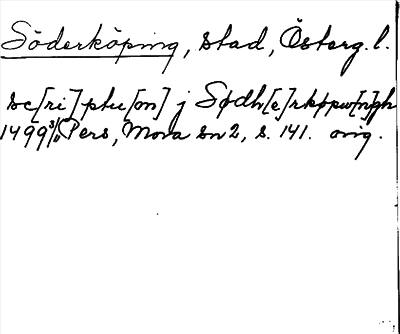 Söderköping, stad, Österg. l.
sc[ri]ptu[m] j Sødh[e]rkøpu[n]gh
1499 3/11 Pers, Mora sn 2, s. 141. orig.